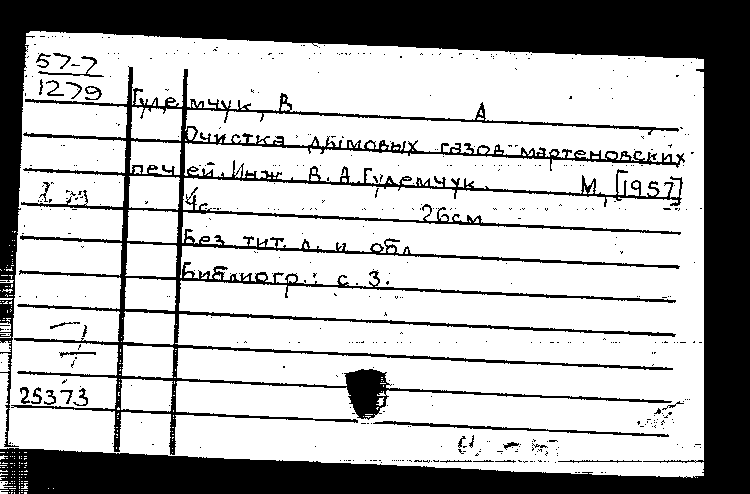 57-7
1279
Гудемчук, В А
Очистка дымовых газов мартеновских
печей. Инж. В. А. Гудемчук. М., [1957]
4с 26см
Без тит. л. и обл
Библиогр.: с. 3.
25373